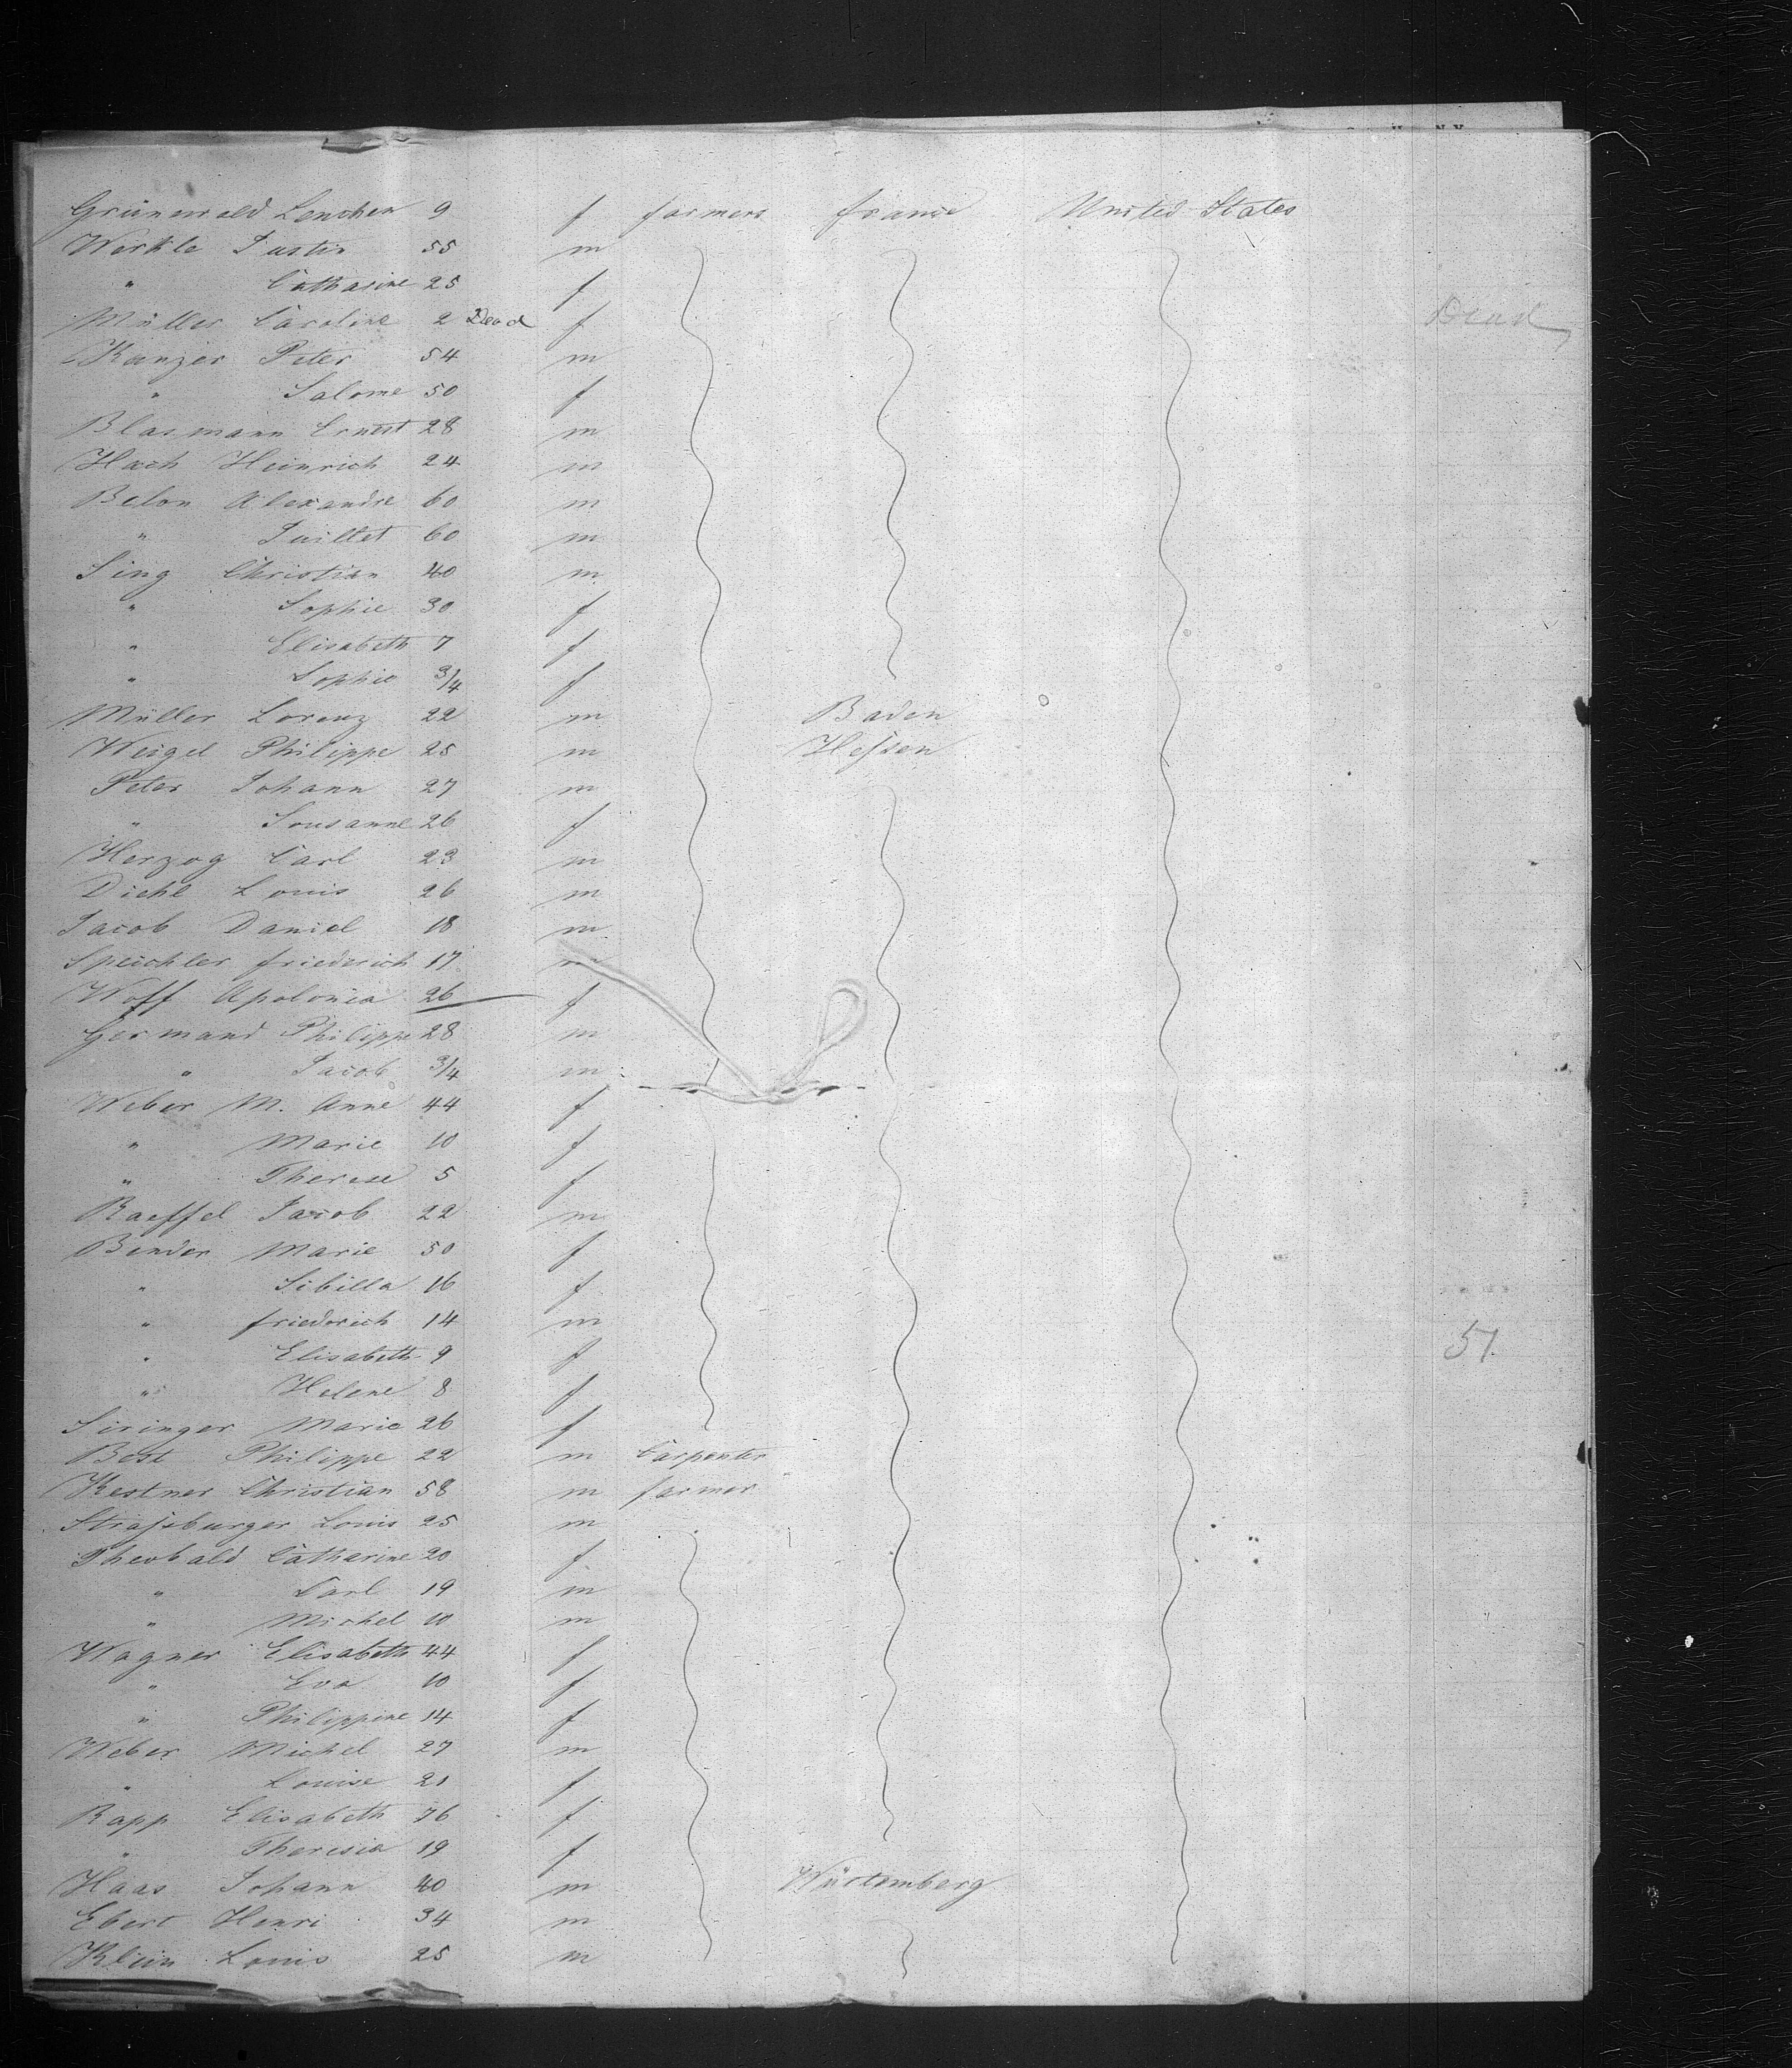 Grünewald Lenchen 9 f farmers france United States
Werkle Justin 55 m
" Catharine 25 f
Müller Caroline 2 Dead f Dead
Kanzer Peter 54 m
" Salome 50 f
Blasmann Ernest 28 m
Hach Heinrich 24 m
Belon Alexandre 60 m
" 60 m
Sing Christian 40 m
" Sophie 30 f
" Elisabeth 7 f
" Sophie 3/4 f
Müller Lorenz 22 m Baden
Weigel Philippe 25 m Hessen
Peter Johann 27 m
" Sousanne 26 f
Herzog Carl 23 m
Diehl Louis 26 m
Jacob Daniel 18 m
Speichler friederich 17 m
Woff Apolonia 26 f
Germand Philippe 28 m
" Jacob 3/4 m
Weber M. Anne 44 f
" Marie 10 f
" Therese 5 f
Raeffel Jacob 22 m
Bender Marie 50 f
" Sibilla 16 f
" friedrich 14 m
" Elisabeth 9 f 51
" Helene 8 f
Siringer Marie 26 f
Best Philippe 22 m Carpenter
Kestner Christian 58 m farmer
Strassburger Louis 25 m
Theobald Catharine 20 f
" Carl 19 m
" Michel 10 m
Wagner Elisabeth 44 f
" Eva 10 f
" Philippine 14 f
Weber Michel 27 m
" Louise 21 f
Rapp Elisabeth 76 f
" Theresia 19 f
Haas Johann 40 m Würtemberg
Ebert Henri 34 m
Klein Louis 25 m